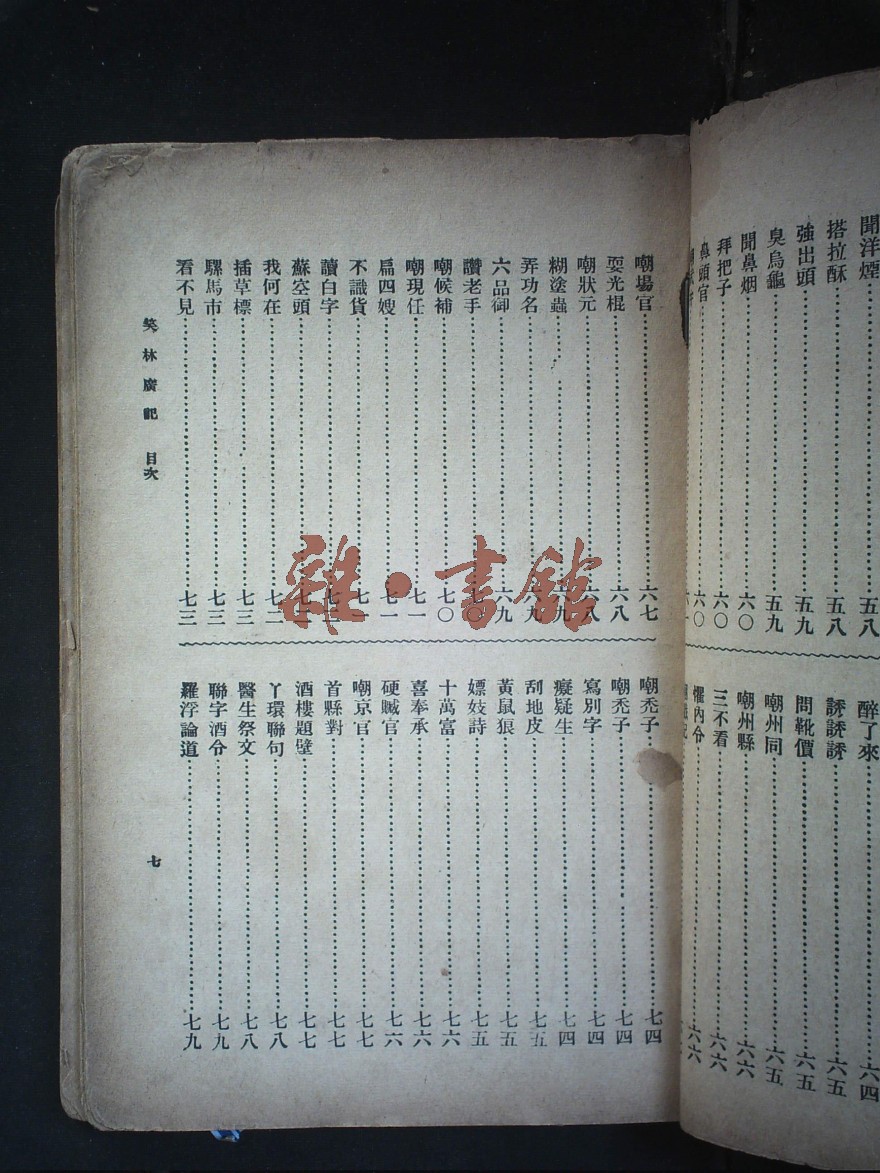 聞洋煙……五八
搭拉酥……五八
強出頭……五九
臭烏龜……五九
聞鼻烟……六〇
拜把子……六〇
鼻頭官……六〇
醉了來……六四
誘誘誘……六五
問靴價……六五
嘲州同……六五
嘲州縣……六六
三不看……六六
懼內令……六六
嘲場官……六七
耍光棍……六八
嘲狀元……六八
糊塗蟲……六九
弄功名……六九
六品御……六九
讚老手……七〇
嘲候補……七〇
嘲現任……七一
扁四嫂……七一
不識貨……七一
讀白字……七二
蘇空頭……七二
我何在……七二
插草標……七三
騾馬市……七三
看不見……七三
嘲禿子……七四
嘲禿子……七四
寫別字……七四
癡疑生……七四
刮地皮……七五
黃鼠狼……七五
嫖妓詩……七五
十萬富……七六
喜奉承……七六
硬贓官……七六
嘲京官……七七
首縣對……七七
酒樓題壁……七七
丫環聯句……七八
醫生祭文……七八
聯字酒令……七九
羅浮論道……七九
笑林廣記 目次
七
雜·書館